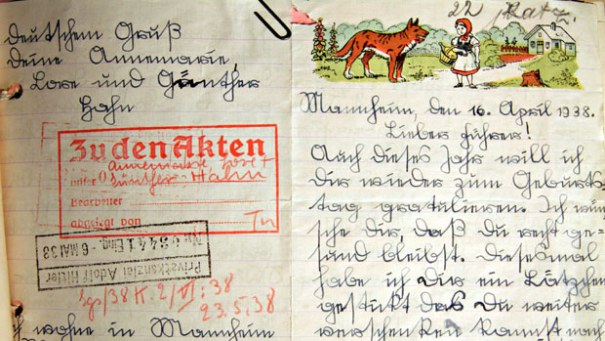 deutschem Gruß
Deine Annemarie,
Lore und Günther
Hahn
Zu den Akten
Annemarie Lore +
unter Günther Hahn
bearbeitet
abgelegt von
Privatkanzlei Adolf Hitler
Eing. - 6 MAI 38
23.5.38
h wohne in Mannheim
22
Mannheim, den 16. April 1938.
Lieber Führer!
Auch dieses Jahr will ich
Dir wieder zum Geburts-
tag gratulieren. Ich wün-
sche Dir, daß Du recht ge-
sund bleibst. Diesesmal
habe ich Dir ein Lätzchen
gestickt das Du weiter
verschenken kannst nach